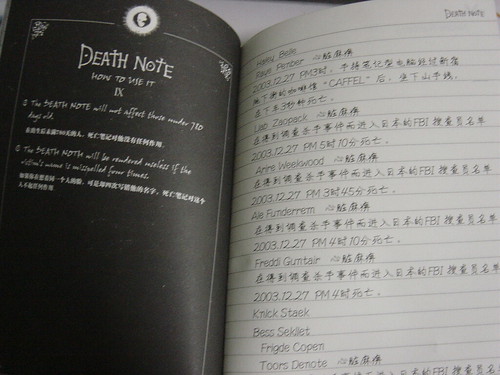 DEATH NOTE
HOW TO USE IT
IX
The DEATH NOTE will not affect those under 780
days old.
在出生后未满780天的人，死亡笔记对他没有任何作用．
The DEATH NOTE will be rendered useless if the
victim's name is misspelled four times.
DEATH NOTE
Haley Belle
Raye Penber 心脏麻痹
2003.12.27 PM3时，手持笔记型电脑经过新宿
"CAFFEL" 后，坐下山手线，
死亡．
Lian Zapack 心脏麻痹
在得到调查杀手事件而进入日本的FBI 搜查员名单
2003.12.27 PM 5时10分死亡．
Arire Weekwood 心脏麻痹
在得到调查杀手事件而进入日本的FBI 搜查员名单
2003.12.27 PM 3时45分死亡．
Ale Funderrem 心脏麻痹
在得到调查杀手事件而进入日本的FBI 搜查员名单
2003.12.27 PM 4时10分死亡．
Freddi Guntair 心脏麻痹
在得到调查杀手事件而进入日本的FBI 搜查员名单
2003.12.27 PM 4时死亡．
Knick Staek
Bess Sekllet
Frigde Copen
Toors Denote 心脏麻痹
在得到调查杀手事件而进入日本的FBI 搜查员名